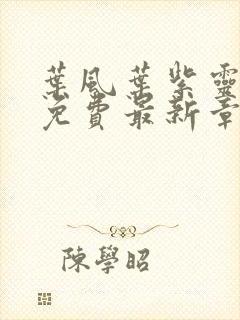 葉風葉紫靈
免費最新章
陳學昭